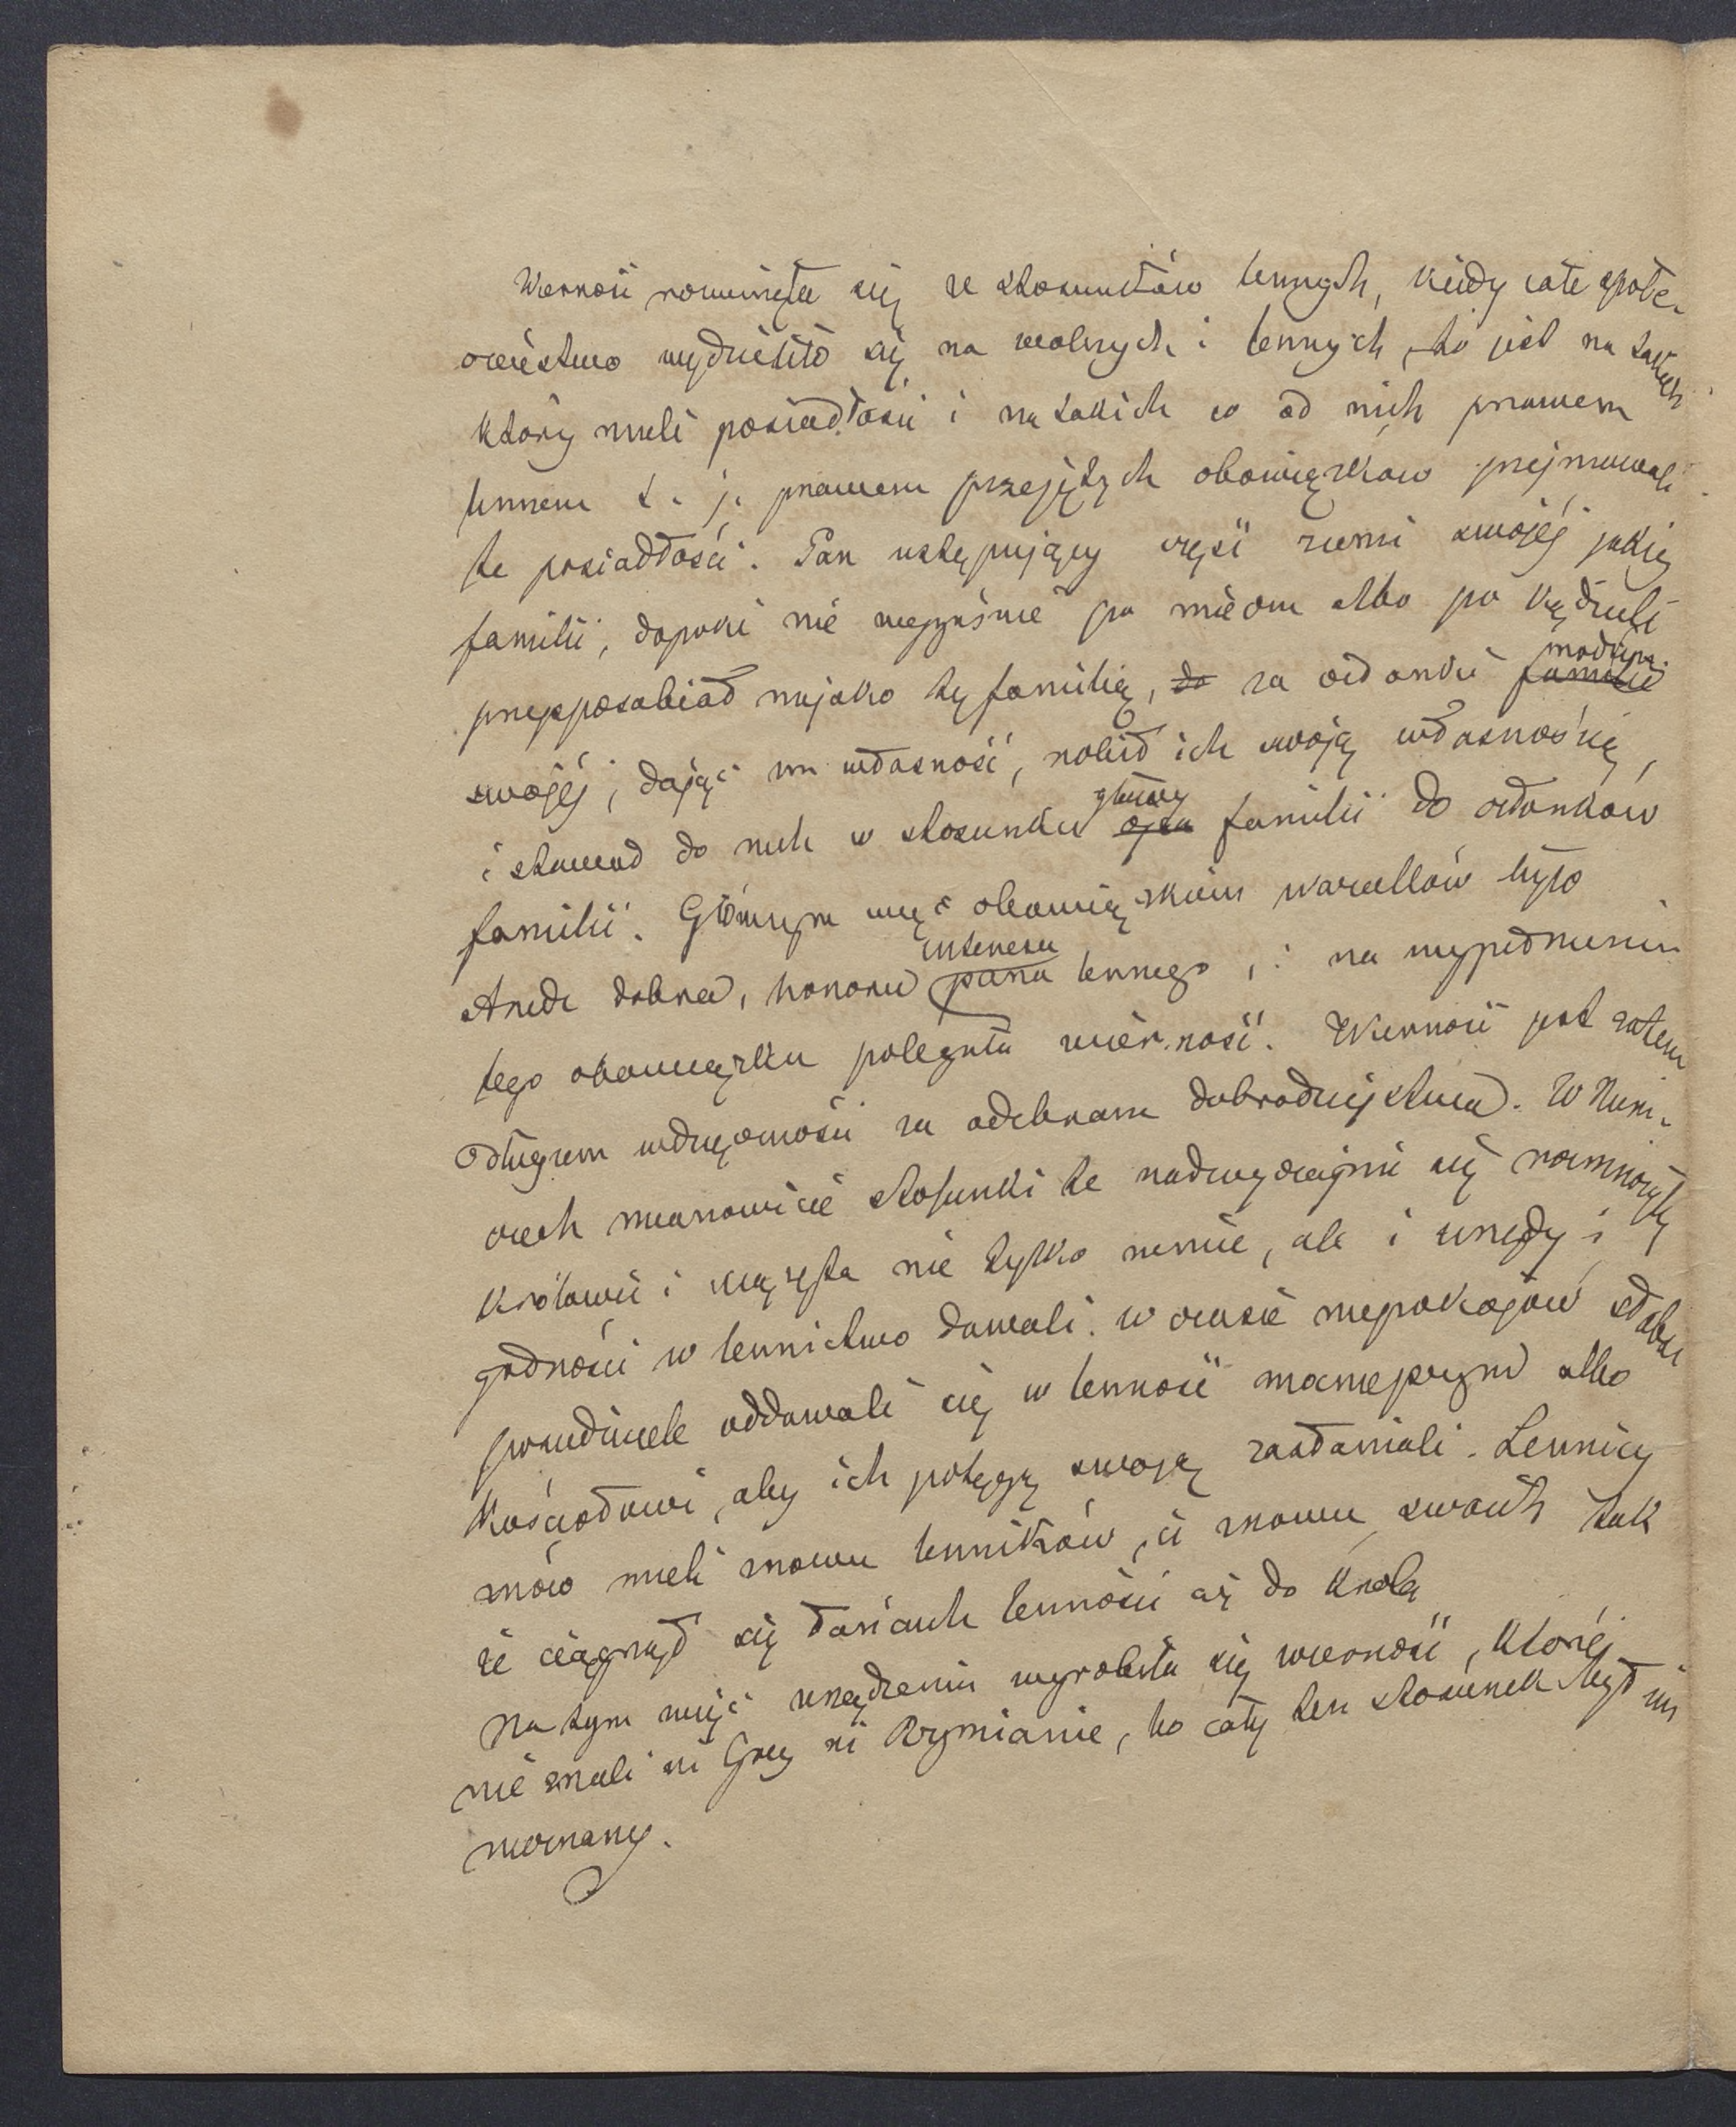 Wierność rozwinęła się ze stosunków lennych, kiedy całe społe-
czeństwo wydzieliło się na wolnych i lennych, to jest na takich
którzy mieli posiadłości i na takich co od nich prawem
lennem t. j. prawem przejętych obowiązków przejmowali
te posiadłości. Pan ustępujący część ziemi swojéj jakiéj
familii, dopóki nie wygaśnie po mieczu albo po kądzieli
przysposabiał niejako tę familię, do za członki familii nadrzęd.
swojéj, dając im własność, robił ich swoją własnością,
i stawał do nich w stosunku ojca głowy familii do członków
familii. Głównym więc obowiązkiem wazallów było
strzedz dobra, honoru pana interesu lennego, i na wypełnieniu
tego obowiązku polegała wierność. Wierność jest zatem
długiem wdzięczności za odebrane dobrodziejstwa. W Niem-
czech mianowicie stosunki te nadzwyczajnie się rozmnożyły
królowie i książęta nie tylko ziemie, ale i urzędy i
godności w lennictwo dawali. w czasie niepokojów słabsi
posiedziciele oddawali się w lenność możniejszym albo
kościołowi, aby ich potęgą swoją zasłaniali. Lennicy
znów mieli znowu lenników, ci znowu swoich tak
że ciągnął się łańcuch lenności aż do króla
Na tym więc urządzeniu wyrobiła się wierność, któréj
nie znali ni Grecy ni Rzymianie, bo cały ten stosunek był im
nieznany.